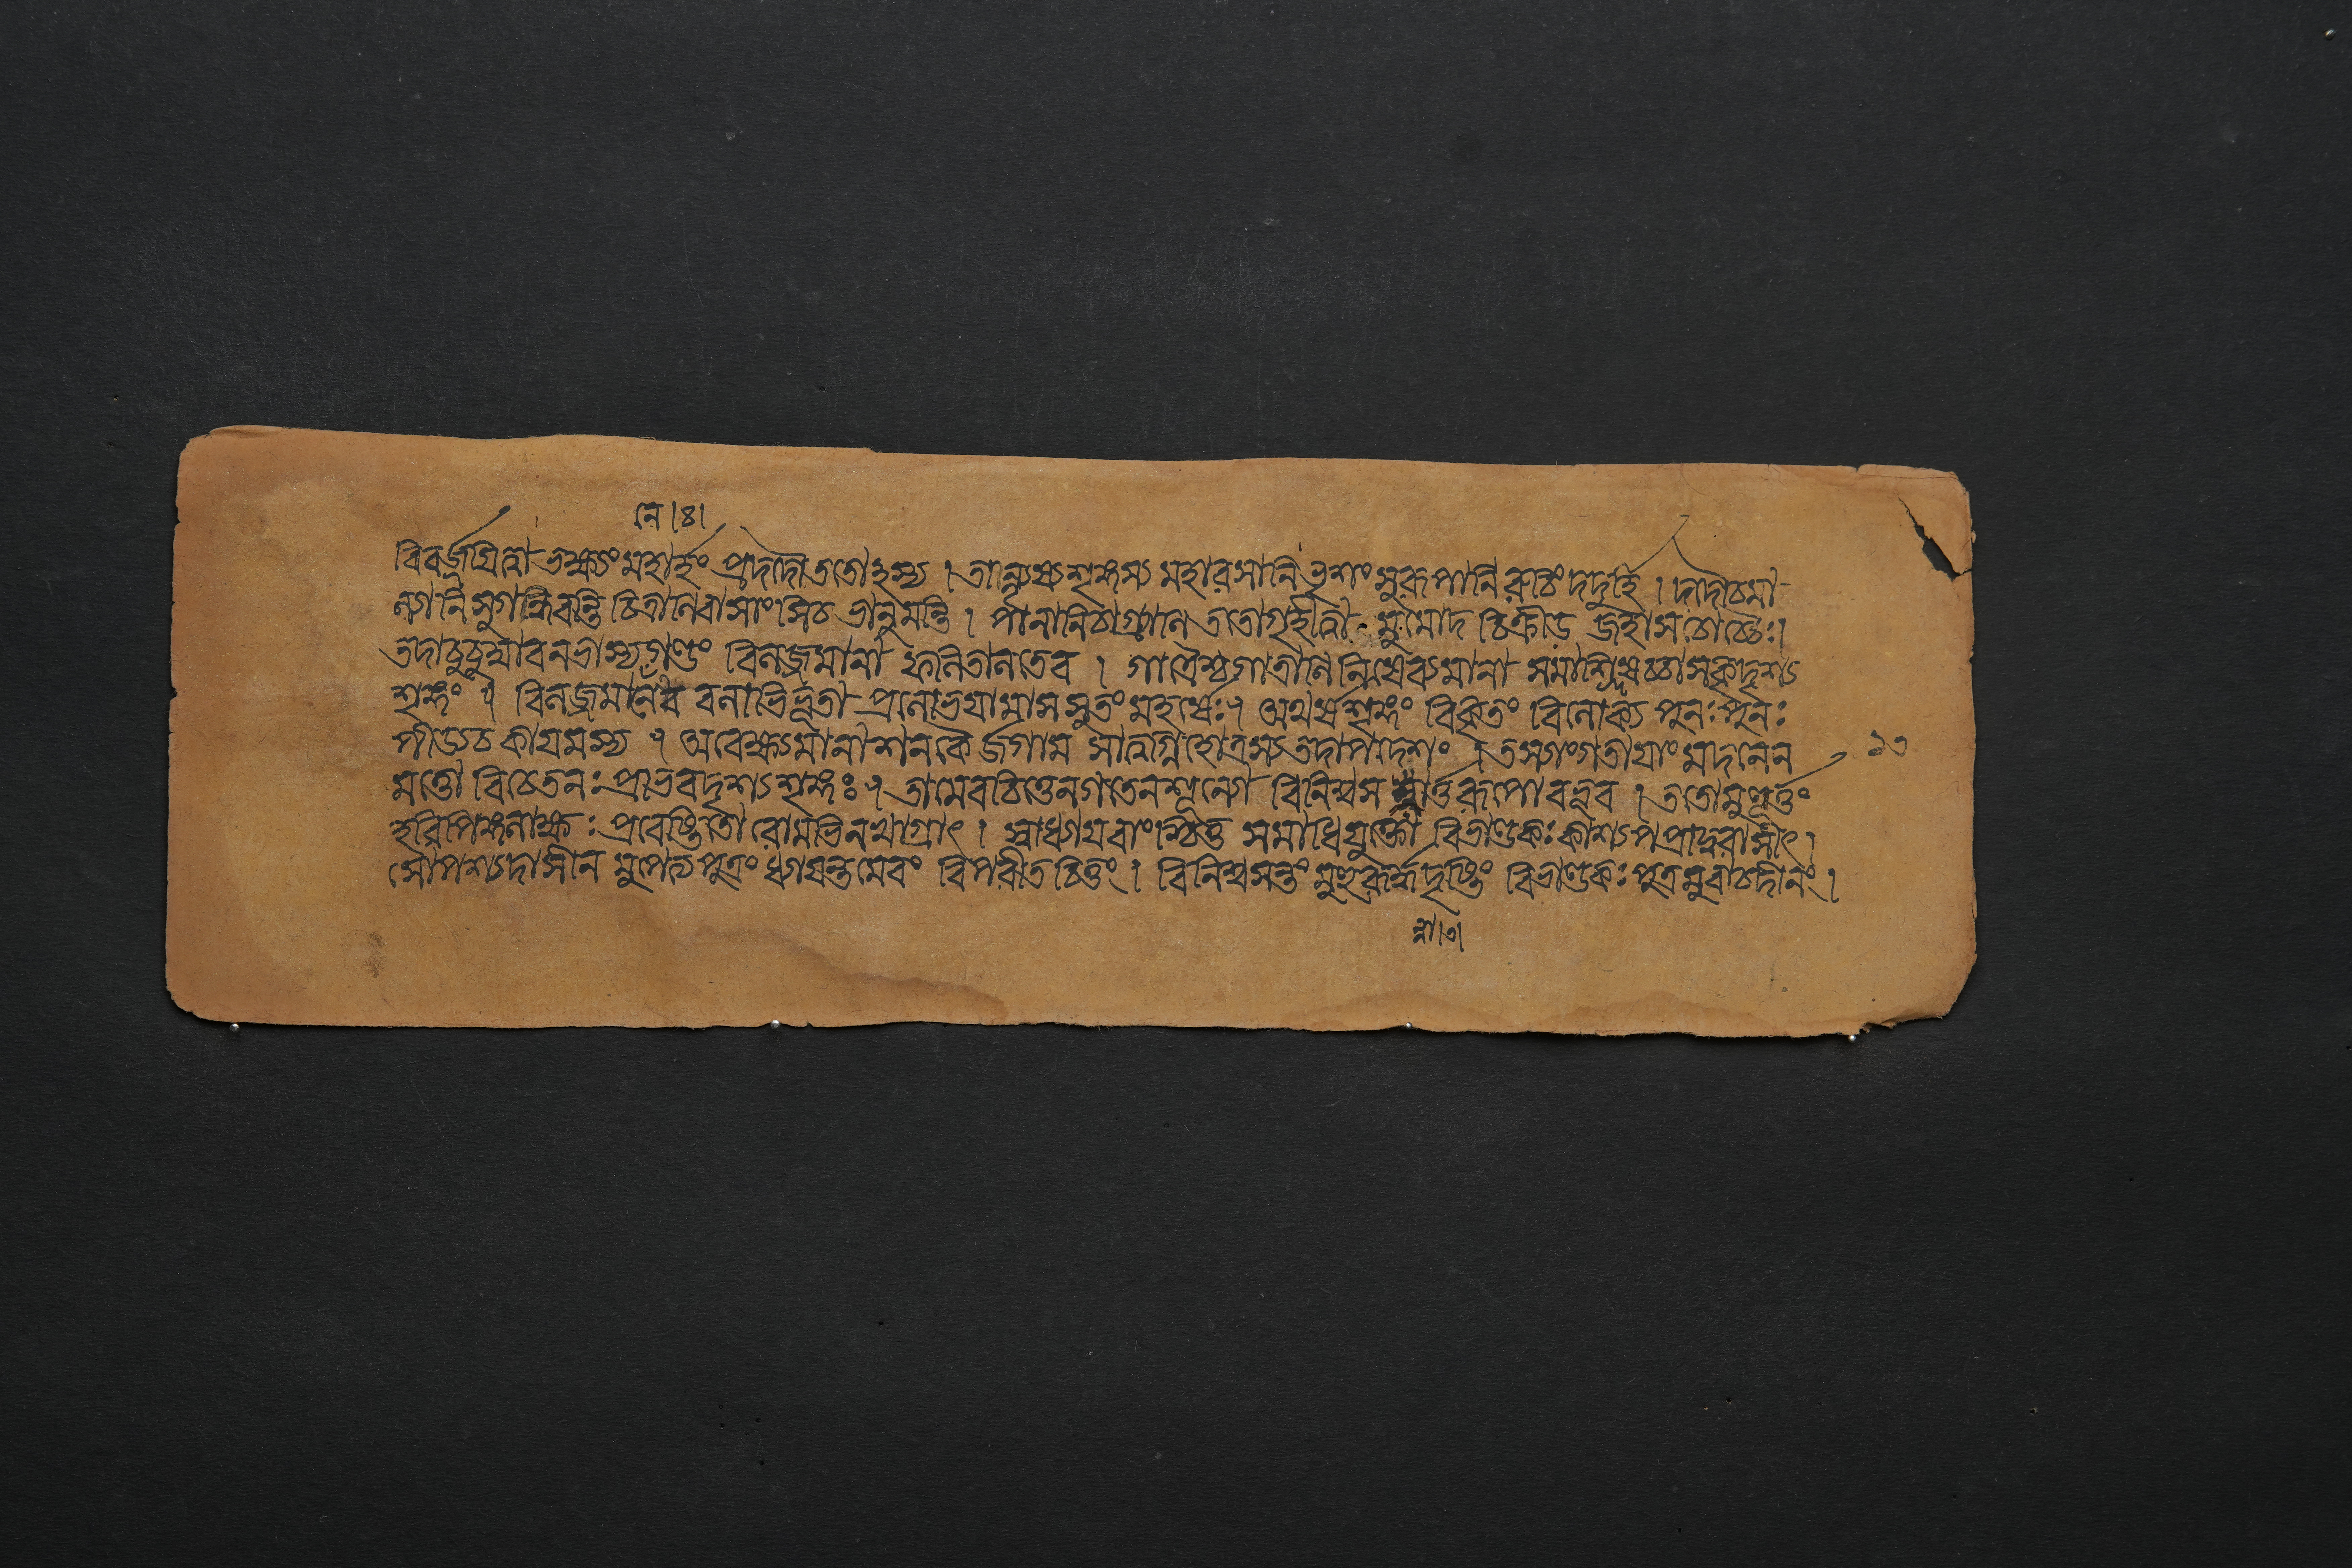 নে।৪।
বিবর্জয়িত্বা ভক্ষ্যং মহার্হং প্রাদদৌ ততোহস্য । তান্যৃষ্যশৃঙ্গস্য মহারসানি ভৃশং সুরূপানি রুচিং দদুর্হি । দদৌচমা
ল্যানি সুগন্ধিবন্তি চিত্রাণি বাসাংসিচ ভানুমন্তি । পানানিচাগ্র্যাণি ততো মুমোদ চিক্রীড জহাস চোচ্চৈঃ।
তদা গণ্ডং বিলজ্জমানা ফলিতালতেব । গাত্রৈশ্চ গাত্রাণি নিষেব্যমানা সমাশ্লিষচ্চাসকৃদৃশ্য
শৃঙ্গং । বিলজ্জমানেব বলাভিভূতা প্রলোভয়ামাস সুতং মহর্ষেঃ। অথর্ষ্যশৃঙ্গং বিকৃতং বিলোক্য পুনঃপুনঃ
পীড্যচ কায়মস্য । অবেক্ষ্যমানা শনকৈর্জগাম সাত্বগ্নিহোত্রস্য তদাপদেশং । তস্যাংগতায়াং মদনেন ১৩
মত্তো বিচেতনঃ প্রাভবদৃশ্যশৃঙ্গঃ । তামেব চিত্তেনগতেন শূন্যো বিনিশ্বস র্ত্তরূপো বভূব । ততোমুহূর্ত্তং
হরিপিঙ্গলাক্ষঃ প্রবেষ্টিতো রোমভিনখাগ্রাৎ । স্বাধ্যায়বাংশ্চিত্ত সমাধিযুক্তো বিভাণ্ডকঃ কাশ্যপ প্রাদুরাসীৎ।
সোপশ্যদাসীন মুপেত্য পুত্রং ধ্যায়ন্তমেবং বিপরীত চিত্তং । বিনিশ্বসন্তং মুহুরূর্দ্ধদৃষ্টিং বিভাণ্ডকঃ পুত্রমুবাচদীনং।
ন্না।৩।